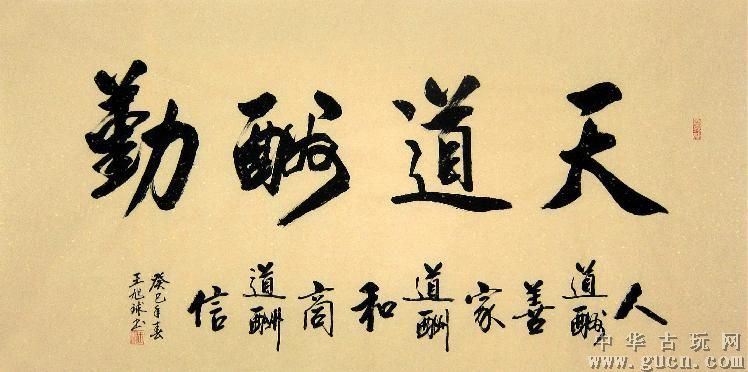 天道酬勤
人道酬善家道酬和商道酬信
癸巳年春
王旭球书
中华古玩网
www.gucn.com